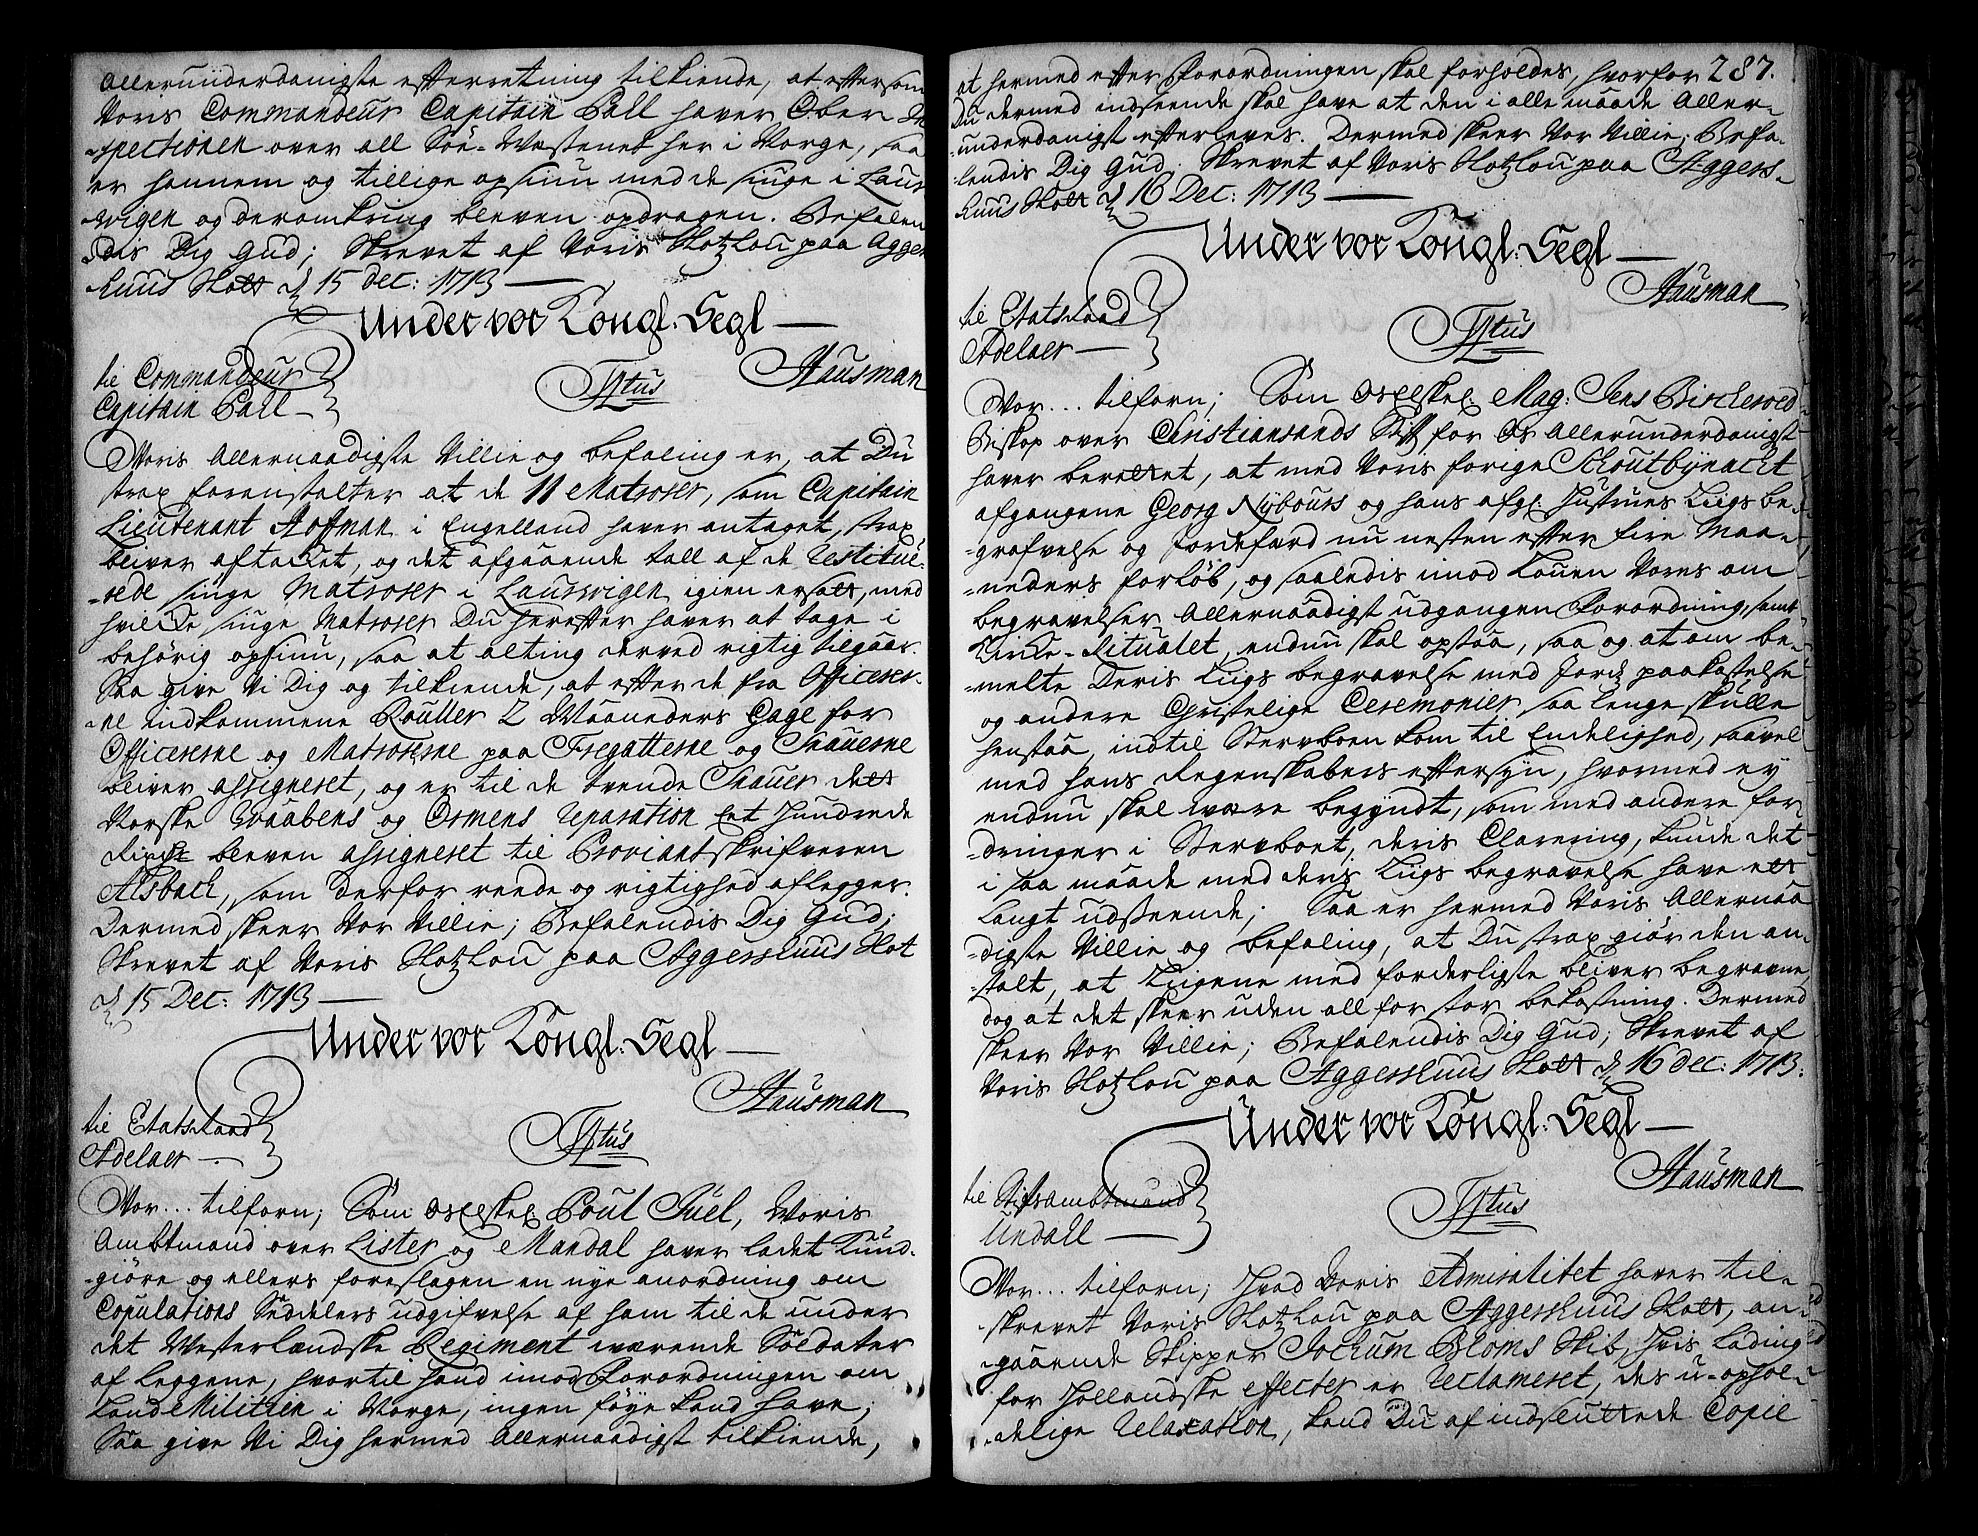 allerunderdanigste efterretning tilkiende, at eftersom
Voris Commandeur Capitain Pall haver Ober In
-spectionen over all Söe-Wæsenet her i Norge, saa
er hannem og tillige opsiun med de siuge i Laur
-vigen og deromkring bleven opdragen. Befalen
-dis Dig Gud; Skrevet af Voris Slotzlou paa Agger
huus Slott d 15 Dec: 1713 —
Under vor Kongl: Segl —
Hausman
til Commandeur
Capitain Pall —
Tytus
Voris Allernaadigste Villie og befaling er, at Du
strax foranstalter at de 11 Matroser, som Capitain
Lieutenant Hoffman i Engelland haver antaget, strax
bliver aftacket, og det afgaaende tall af de restitue-
-rede siuge Matroser i Laurvigen igien ersatt, med
hvilcke siuge Matroser Du herefter haver at tage i
behörig opsiun, saa at alting derved rigtig tilgaar.
Saa give Vi Dig og tilkiende, at efter de fra Officerer-
-ne indkommene Rouller 2 Maaneders Gage for
Officererne og Matroserne paa Fregatterne og Skauerne
bliver assigneret, og er til de tvende Skauer dett
Norske Vaabens og Ormens reparation Eet Hundrede
Rixdr bleven assigneret til Proviantskrifveren
Alsbach, som derfor reede og rigtighed aflegger.
Dermed skeer Vor Villie; Befalendis Dig Gud;
Skrevet af Voris Slotzlou paa Aggershuus Slot
d 15 Dec: 1713 —
Under vor Kongl: Segl —
Hausman
til Etatsraad
Adelaer —
Tytus
Vor... tilforn; Som Os Elskel: Poul Juel, Voris
Ambtmand over Lister og Mandal haver ladet kund-
-giöre og ellers foreslagen en nye anordning om
Copulations Seddelers udgifvelse af ham til de under
det Vesterlændske Regiment værende Soldater
af Leggene, hvortil hand imod Forordningen om
Land Militzien i Norge, ingen föye kand have;
Saa give Vi Dig hermed Allernaadigst tilkiende,
at hermed efter Forordningen skal forholdes, hvorfor 287.
Du dermed indseende skal have at den i alle maade Aller-
-underdanigst efterleves. Dermed skeer Vor Villie; Befa-
-lendis Dig Gud. Skrevet af Voris Slotzlou paa Aggers-
huus Slott d 16 Dec: 1713 —
Under vor Kongl: Segl —
Hausman
til Etatsraad
Adelaer —
Tytus
Vor... tilforn; Som Os Elskel: Mag: Jens Bircherod
Biskop over Christiansands Stift for Os Allerunderdanigst
haver berettet, at med Voris forige Schoutbynacht
afgangene Georg Nÿbours og hans afgl: Hustrues Liigs be-
-grafvelse og Jordefærd nu nesten efter fire Maa-
-neders forlöb, og saaledis imod Louen Vores om
begravelser Allernaadigst udgangen Forordning, samt
Kircke-Ritualet, endnu skal opstaa, saa og at om be-
-melte Deris Liigs begravelse med Jords paakastelse
og andere Christelige Ceremonier saa lenge skulle
henstaa, indtil Stervboen kom til Endelighed, saavel
med hans Regenskabers eftersyn, hvormed ey
endnu skal være begyndt, som med andere for
-dringer i Stervboet, deris Clarering, kunde det
i saa maade med deris Liigs begravelse have ett
langt udseende; Saa er hermed Voris Allernaa
-digste Villie og befaling, at Du strax giör den an-
-stalt, at Liigene med forderligste bliver begravne,
dog at det skeer uden all for stor bekostning. Dermed
skeer Vor Villie; Befalendis Dig Gud; Skrevet af
Voris Slotzlou paa Aggershuus Slott d 16 Dec: 1713.
Under vor Kongl: Segl —
Hausman
til Stiftsambtmand
Undall —
Tytus
Vor... tilforn; Hvad Voris Admiralitet haver til-
-skrevet Voris Slotzlou paa Aggershuus Slott, an-
-gaaende Skipper Jochum Bloms Skib, Hvis Lading
for Hollandske effecter er reclameret, des u-ophol-
-delige relaxation, kand Du af indsluttede Copie